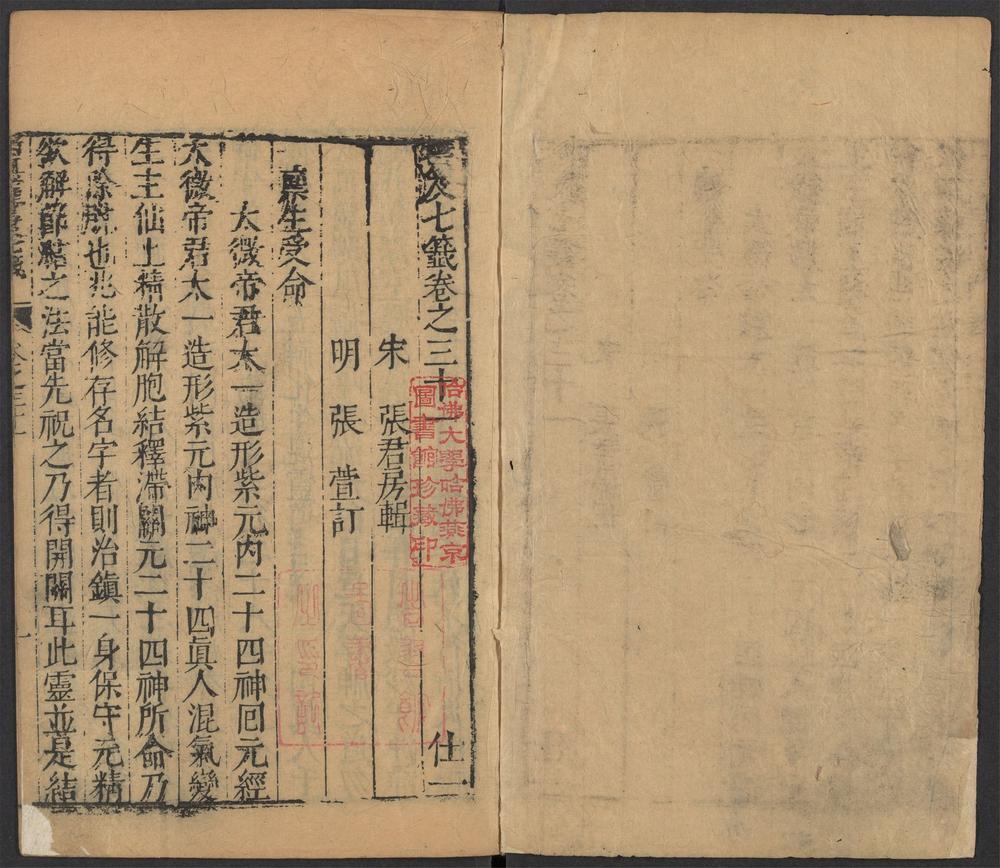 雲笈七籤卷之三十一 仕一
宋 張君房輯
明 張 萱訂
稟生受命
太微帝君太一造形紫元內二十四神囘元經
太微帝君太一造形紫元內神二十四眞人混氣變
生主仙上精散解胞結釋滯關元二十四神所命乃
得除也兆能修存名字者則治鎮一身保守元精
欲解節結之法當先祝之乃得開關耳此靈並是結
哈佛大學哈佛燕京
圖書館珍藏印